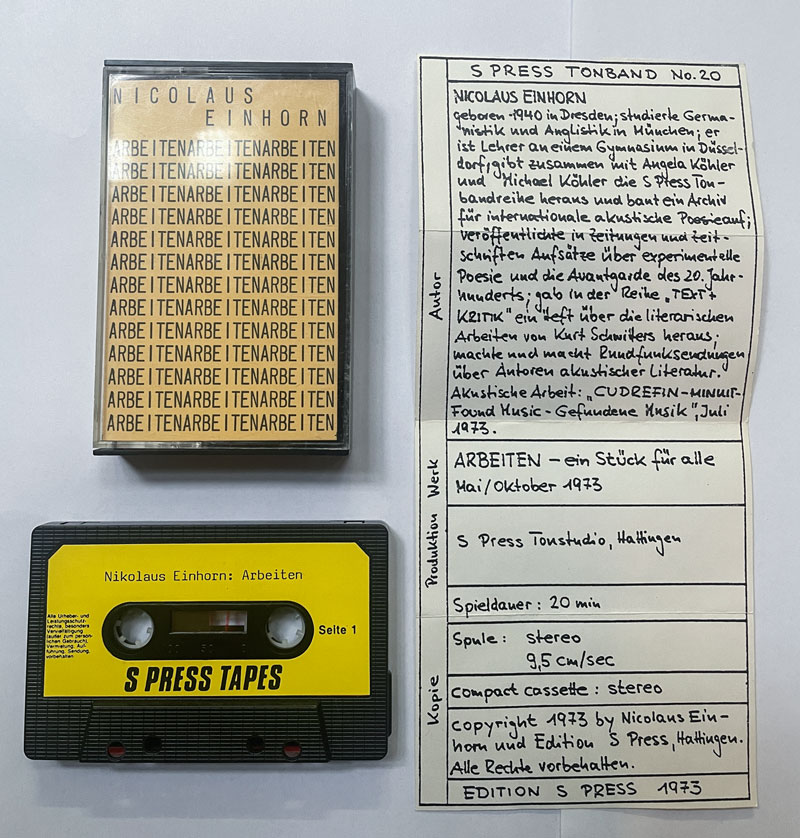 NICOLAUS
EINHORN
ARBEITENARBEITENARBEITEN
ARBEITENARBEITENARBEITEN
ARBEITENARBEITENARBEITEN
ARBEITENARBEITENARBEITEN
ARBEITENARBEITENARBEITEN
ARBEITENARBEITENARBEITEN
ARBEITENARBEITENARBEITEN
ARBEITENARBEITENARBEITEN
ARBEITENARBEITENARBEITEN
ARBEITENARBEITENARBEITEN
ARBEITENARBEITENARBEITEN
ARBEITENARBEITENARBEITEN
ARBEITENARBEITENARBEITEN
Nikolaus Einhorn: Arbeiten
Alle Urheber- und
Leistungsschutz-
rechte, besonders
Vervielfältigung
(außer zum persön-
lichen Gebrauch),
Vermietung, Auf-
führung, Sendung,
vorbehalten
Seite 1
100 50 0
S PRESS TAPES
S PRESS TONBAND No. 20
Autor
NICOLAUS EINHORN
geboren 1940 in Dresden; studierte Germa-
nistik und Anglistik in München; er
ist Lehrer an einem Gymnasium in Düssel-
dorf; gibt zusammen mit Angela Köhler
und Michael Köhler die S Press Ton-
bandreihe heraus und baut ein Archiv
für internationale akustische Poesie auf;
veröffentlichte in Zeitungen und Zeit-
schriften Aufsätze über experimentelle
Poesie und die Avantgarde des 20. Jahr-
hunderts; gab in der Reihe „TEXT+
KRITIK" ein Heft über die literarischen
Arbeiten von Kurt Schwitters heraus;
machte und macht Rundfunksendungen
über Autoren akustischer Literatur.
Akustische Arbeit: „CUDREFIN-MINUIT-
Found Music - Gefundene Musik", Juli
1973.
Werk
ARBEITEN – ein Stück für alle
Mai/Oktober 1973
Produktion
S Press Tonstudio, Hattingen
Spieldauer: 20 min
Kopie
Spule: stereo
9,5 cm/sec
compact cassette: stereo
copyright 1973 by Nicolaus Ein-
horn und Edition S Press, Hattingen.
Alle Rechte vorbehalten.
EDITION S PRESS 1973